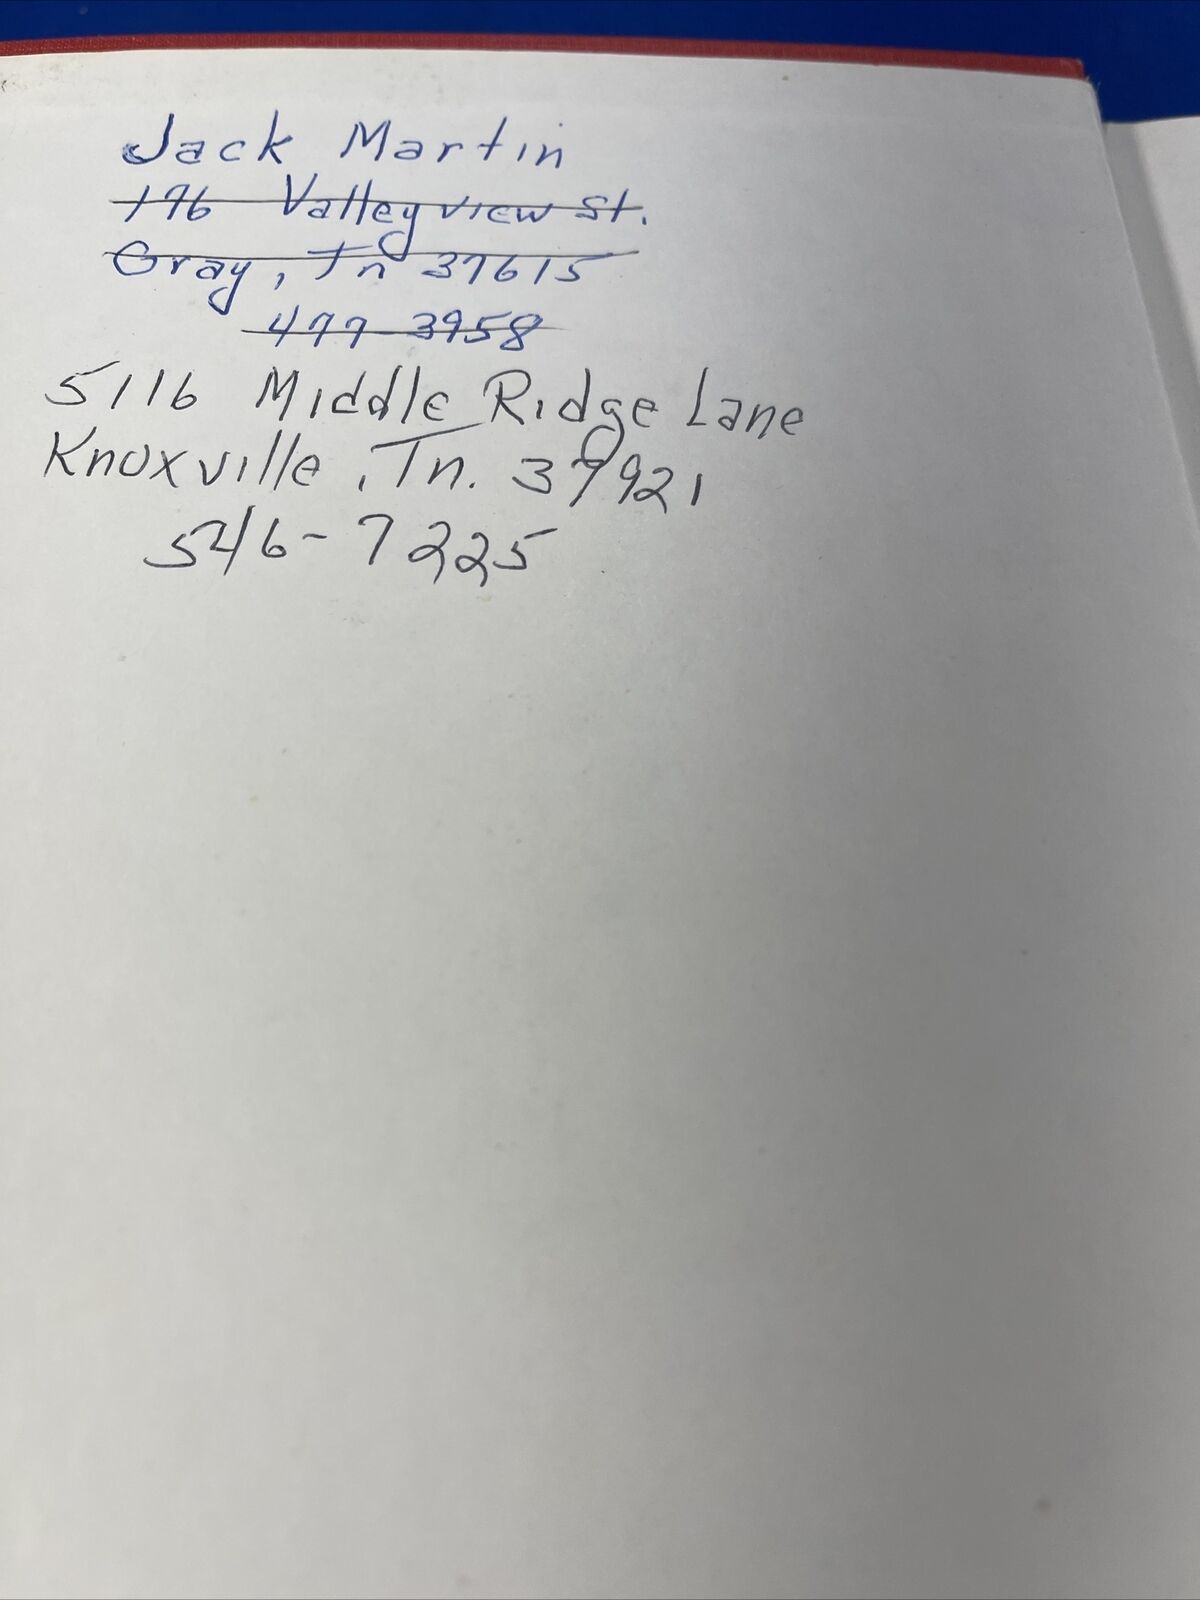 Jack Martin
176 Valleyview St.
Gray, Tn 37615
477-3958
5116 Middle Ridge Lane
Knoxville, Tn. 37921
546-7225